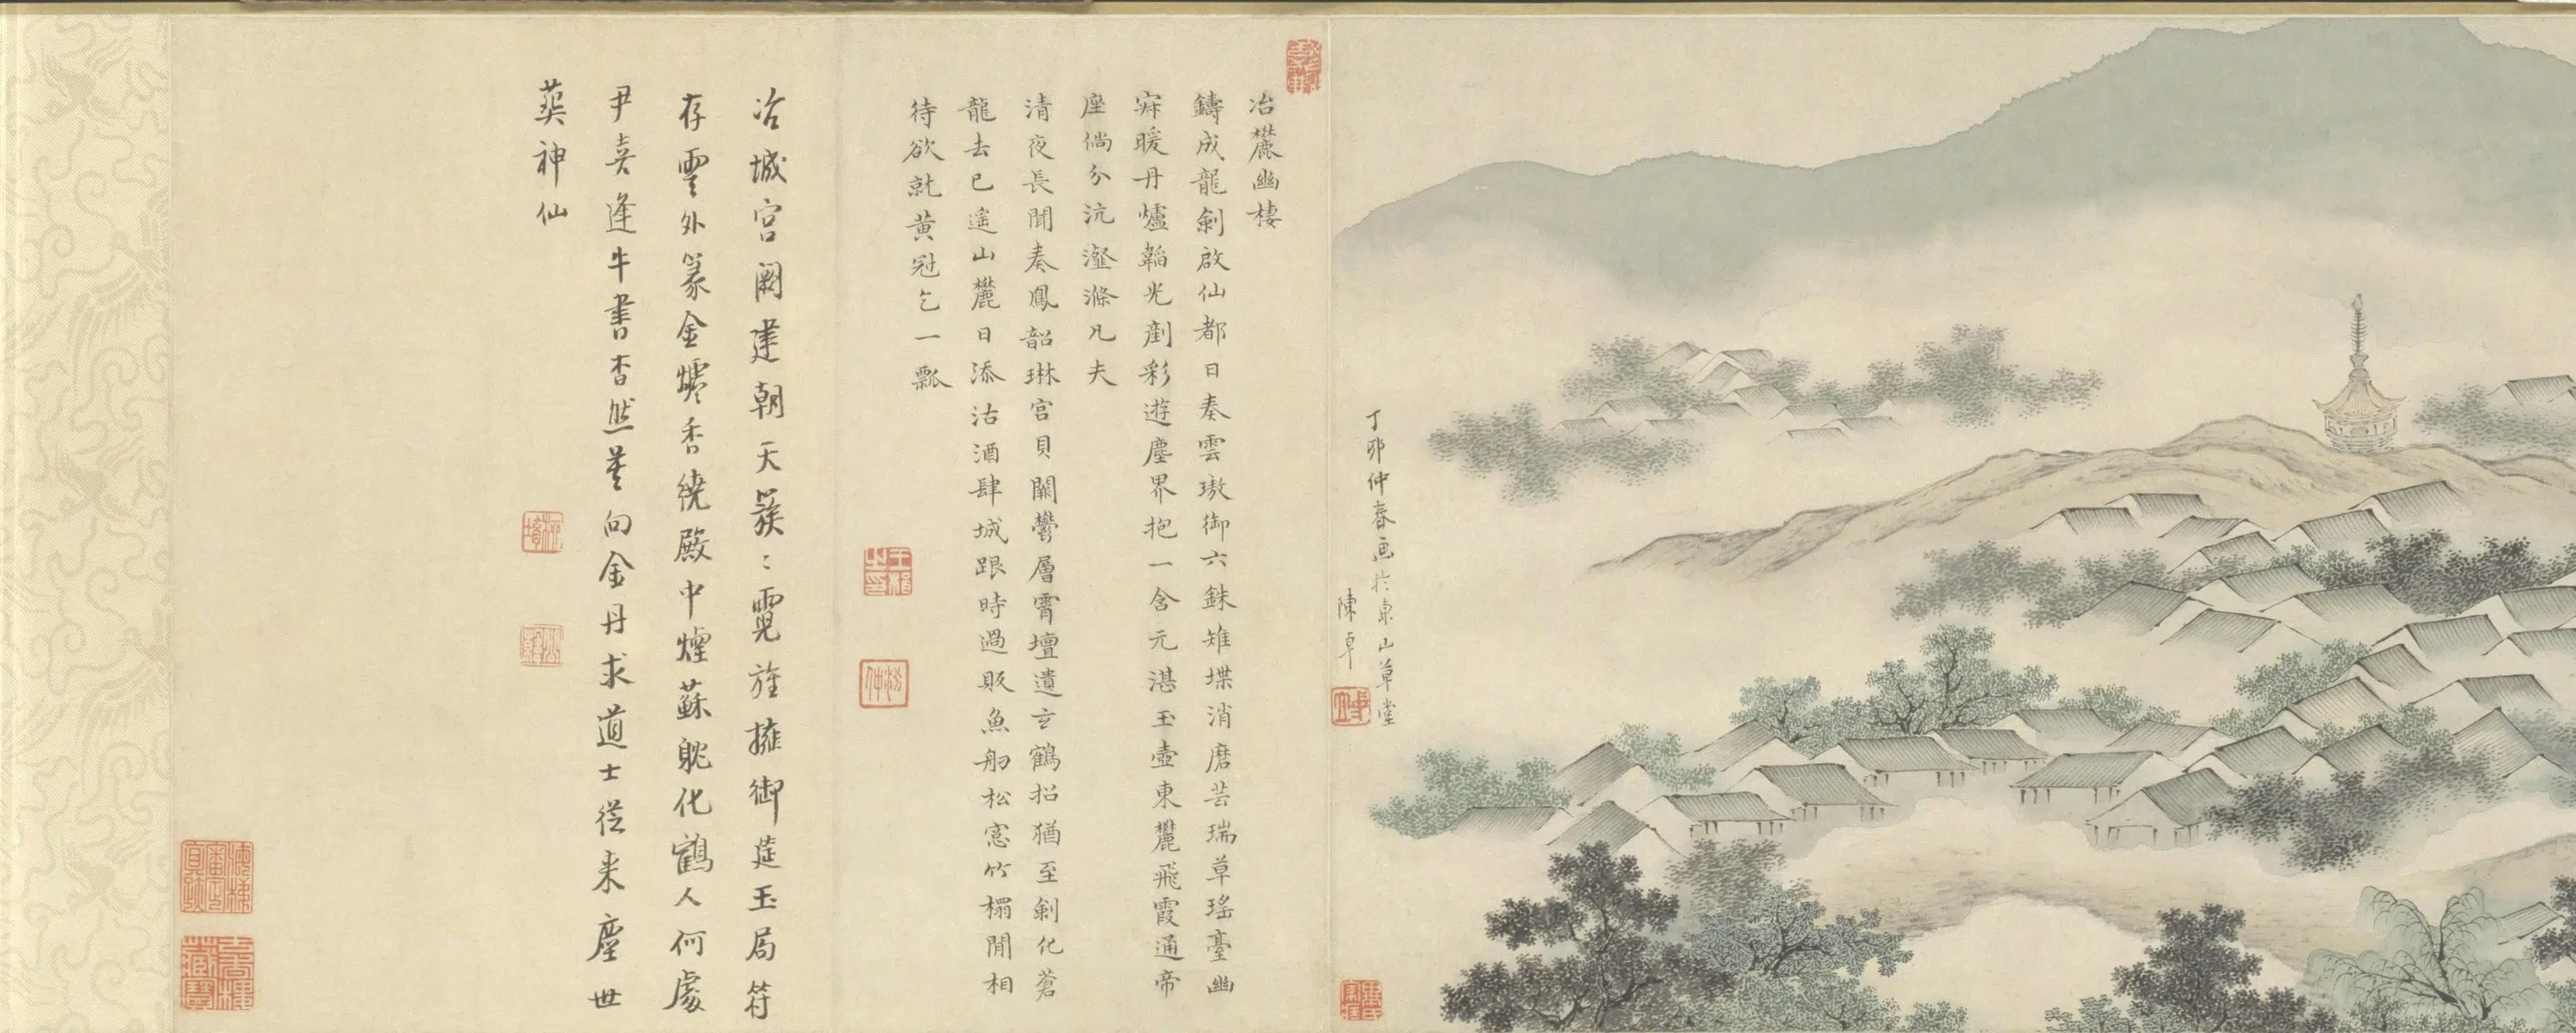 丁卯仲春画於東山草堂
陳卓
冶麓幽棲
鑄成龍劍啟仙都日奏雲璈御六銖雉堞消磨芸瑞草瑤臺幽
寂暖丹爐韜光剷彩遊塵界抱一含元湛玉壺東麓飛霞通帝
座倘分沆瀣滌凡夫
清夜長聞奏鳳韶琳宮貝闕鬱層霄壇遺玄鶴招猶至劍化蒼
龍去已遙山麓日添沽酒肆城跟時過販魚舠松窓竹榻閒相
待欲就黃冠乞一瓢
冶城宮闕建朝天簇〻霓旌擁御筵玉局符
存雲外篆金爐香繞殿中煙蘇躭化鶴人何處
尹喜逢牛書杳然莫向金丹求道士從来塵世
葬神仙